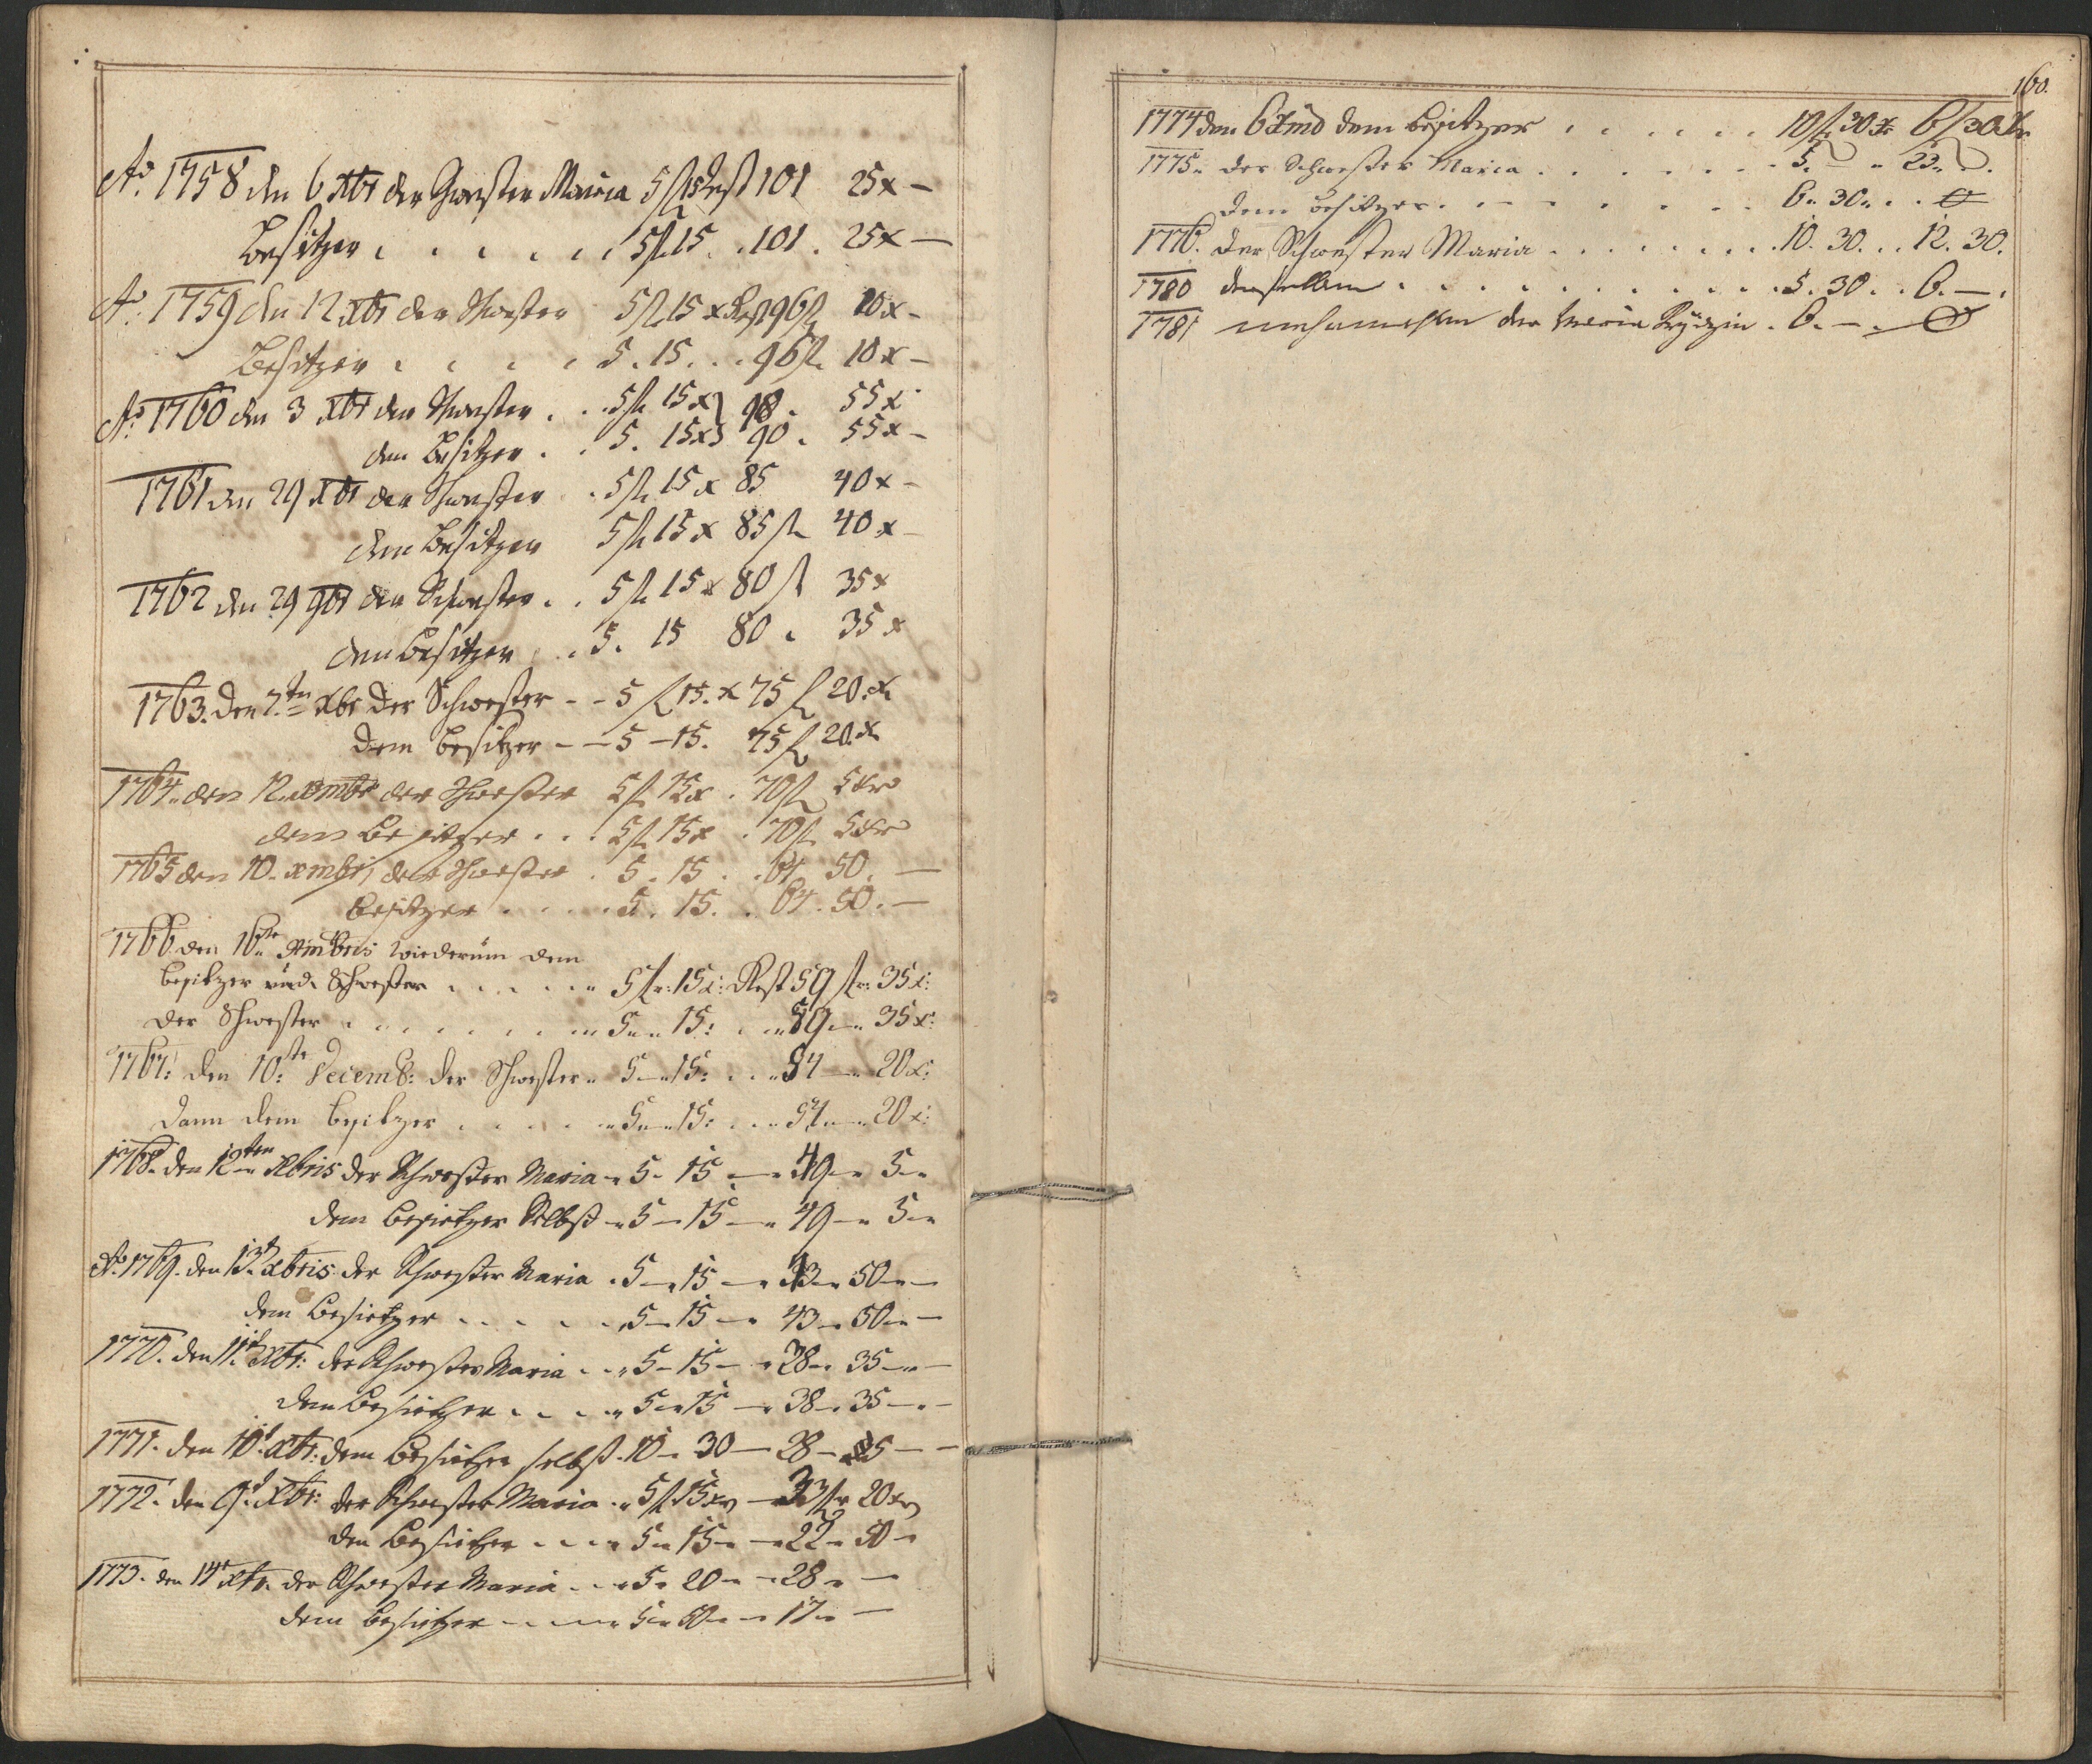 Ao. 1758 den 6 Xbr der Schwester Maria 5 fl 15 Rest 101 25 x —
Besitzer . . . . . . 5 fl 15 . . 101 . 25 x —
Ao. 1759 den 12 Xbr der Schwester 5 fl 15 x Rest 96 fl 10 x —
Besitzer . . . . 5 . 15 . . . 96 fl 10 x —
Ao. 1760 den 3 Xbr der Schwester . . . 5 fl 15 x 90 . 55 x
dem Besitzer . . 5 . 15 x 90 . 55 x —
1761 den 29 Xbr der Schwester . 5 fl 15 x 85 40 x —
dem Besitzer 5 fl 15 x 85 fl 40 x —
1762 den 29 9br der Schwester . . 5 fl 15 x 80 fl 35 x
dem Besitzer . . 5 . 15 80 . 35 x
1763. den 7.ten Xbr der Schwester - - 5 fl 15. x 75 fl 20. x
dem Besitzer - - 5 - 15. 75 fl 20. x
1764. den 12. xmbr der Schwester 5 fl 15 x . 70 fl 5 xr
dem Besitzer . . . 5 fl 15 x . 70 fl 5 xr
1765 den 10. xmbris der Schwester . 5 . 15 . . 64 50 . —
Besitzer . . . . . 5 . 15 . . 64 . 50 . —
1766 den 16ten Xmbris wiederum dem
besitzer und Schwester . . . . . . 5 fl: 15 x: Rest 59 fl: 35 x:
der Schwester . . . . . . . . 5 " 15: . . " 59 — " 35 x:
1767: den 10:te Decemb: der Schwester " 5 — " 15: . . . " 54 — " 20 x:
dann dem besitzer . . . . . " 5 — " 15: . . . " 54 — " 20 x:
1768. den 12ten Xbris der Schwester Maria - " 5 - 15 — " 49 — " 5 - "
dem besietzer Selbst - " 5 — 15 — " 49 — " 5 — "
Ao. 1769. den 13t Xbris der Schwester Maria . 5 — " 15 — " 43 — " 50 — " —
dem besietzer . . . . . . " 5 — 15 — " 43 — 50 — " —
1770. den 11t Xbr: der Schwester Maria . . " 5 — 15 — " 38 — " 35 — " —
dem besietzer . . . . " 5 — " 15 — " 38 — . 35 — " —
1771. den 10t Xbr: dem besietzer selbst . 10 — 30 — 28 — 5 — —
1772. den 9t Xbr: der Schwester Maria . " 5 fl 15 xr — 33 fl 20 xr
den besietzer . . . " 5 " 15 — " — 22 " 50 —
1773. den 14t Xbr. der Schwester Maria . . " 5 " 20 — " — 28 " —
dem besietzer - . - . - " 5 — 50 — " — 17 — " —
160.
1774 den 6 xmb dem besitzer . . . . . . 10 fl 30 x 6 fl 30 xr
1775. der Schwester Maria . . . . . . 5. " 23 " .
dem besitzer . . . . . . . 6 " 30 " . . 0
1776. der Schwester Maria . . . . . . . 10. 30 . . . 12. 30.
1780 derselben . . . . . . . . . . 5. 30 . . 6. — .
1781 der Maria . 6. — . 0